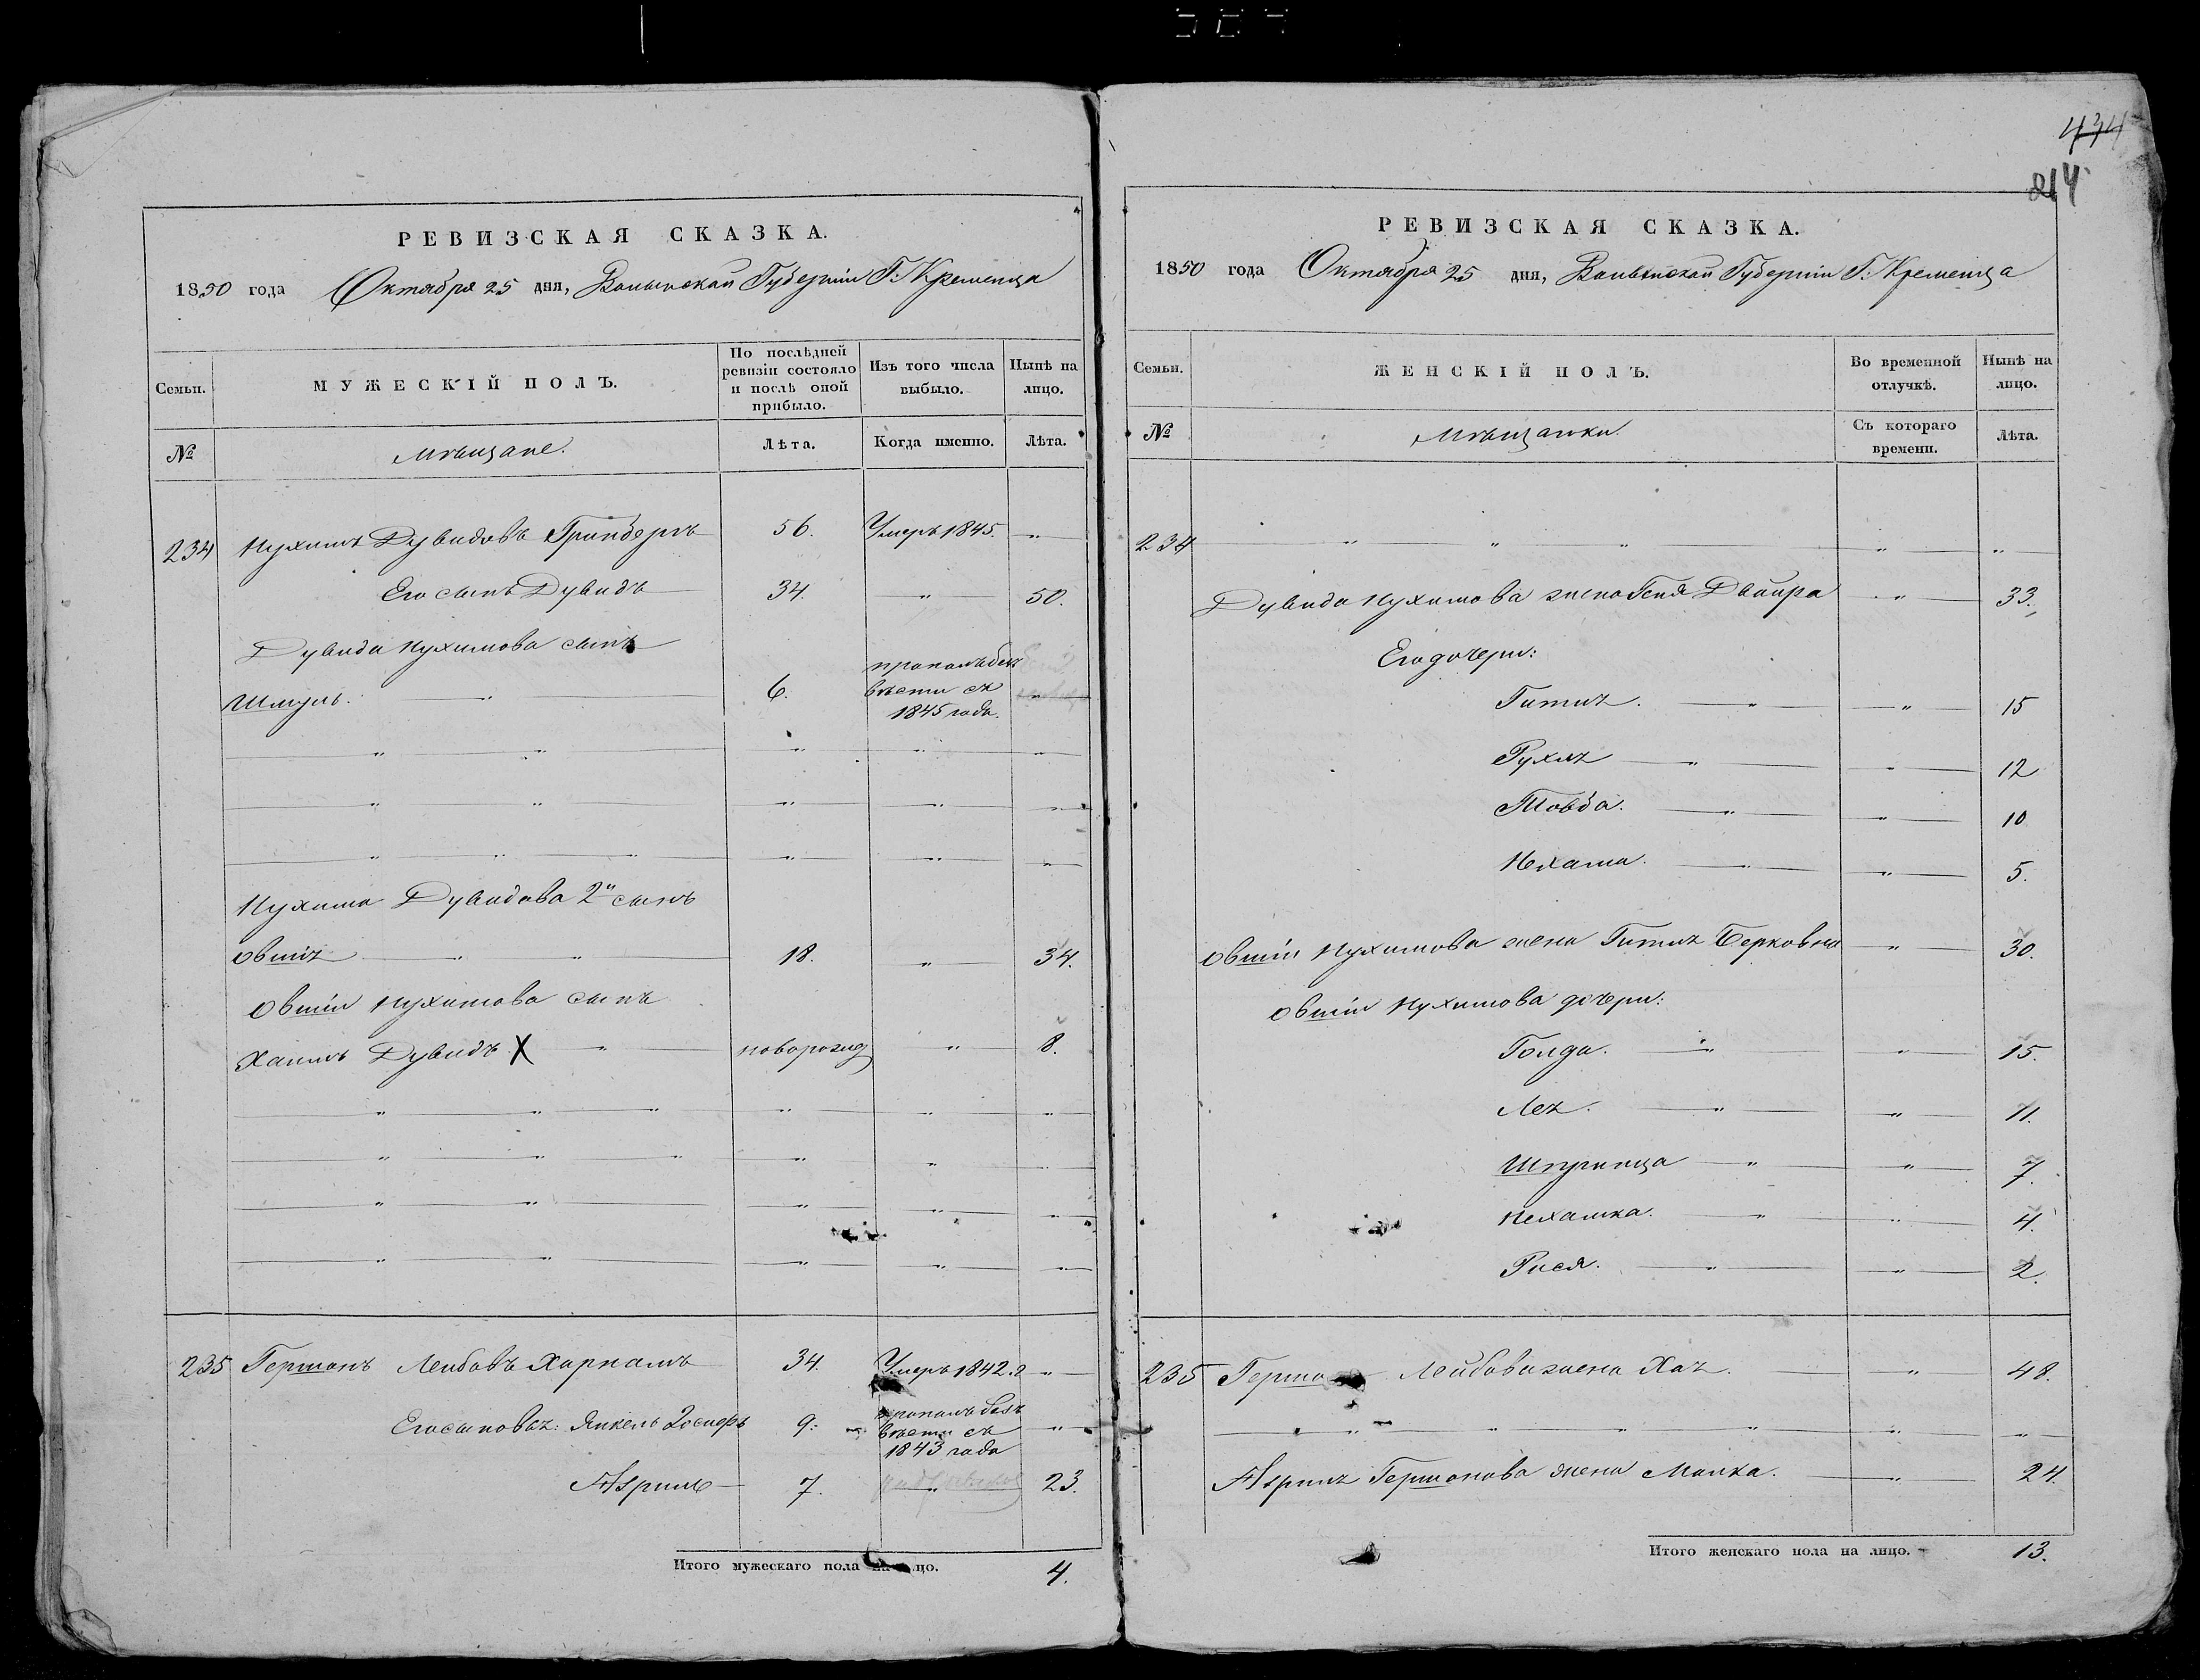 434
214
РЕВИЗСКАЯ СКАЗКА.
1850 года Октября 25 дня, Волынской Губерніи Г. Кременца
Семьи.
МУЖЕСКІЙ ПОЛЪ.
По послѣдней ревизіи состояло и послѣ оной прибыло.
Изъ того числа выбыло.
Нынѣ на лицо.
№
Мѣщане.
Лѣта.
Когда именно.
Лѣта.
234 Нухимъ Дувидовъ Гринбергъ 56. Умеръ 1845. "
Его сынъ Дувидъ 34 " 50.
Дувида Нухимова сынъ
Шмуль. " 6. пропалъ безъ вѣсти съ 1845 года. "
Нухима Дувидова 2й сынъ
Овшія " " 18. " 34.
Овшіи Нухимова сынъ
Хаимъ Дувидъ. X " новорожд " 8.
235 Гершонъ Лейбовъ Харпакъ 34. Умеръ 1842. "
Его сыновья: Янкель 9. пропалъ безъ вѣсти съ 1843 года "
Азриль 7. " 23.
Итого мужескаго пола на лицо. 4.
РЕВИЗСКАЯ СКАЗКА.
1850 года Октября 25 дня, Волынской Губерніи Г. Кременца
Семьи.
ЖЕНСКІЙ ПОЛЪ.
Во временной отлучкѣ.
Нынѣ на лицо.
№
Мѣщанки.
Съ котораго времени.
Лѣта.
234 " " " " "
Дувида Нухимова жена Двойра " 33.
Его дочери:
Гитля. " " 15
Рухля " " 12
Товба. " " 10
Нехама. " " 5.
Овшіи Нухимова жена Гитля Берковна " 30.
Овшіи Нухимова дочери:
Голда. " " 15.
Лея. " " 11.
Шпринца " " 7.
Нехамка. " " 4.
Рися. " " 2.
235 Лейбова жена Хая. " 48.
" " " " " "
Азриля Гершонова жена Малка. " 24.
Итого женскаго пола на лицо. 13.